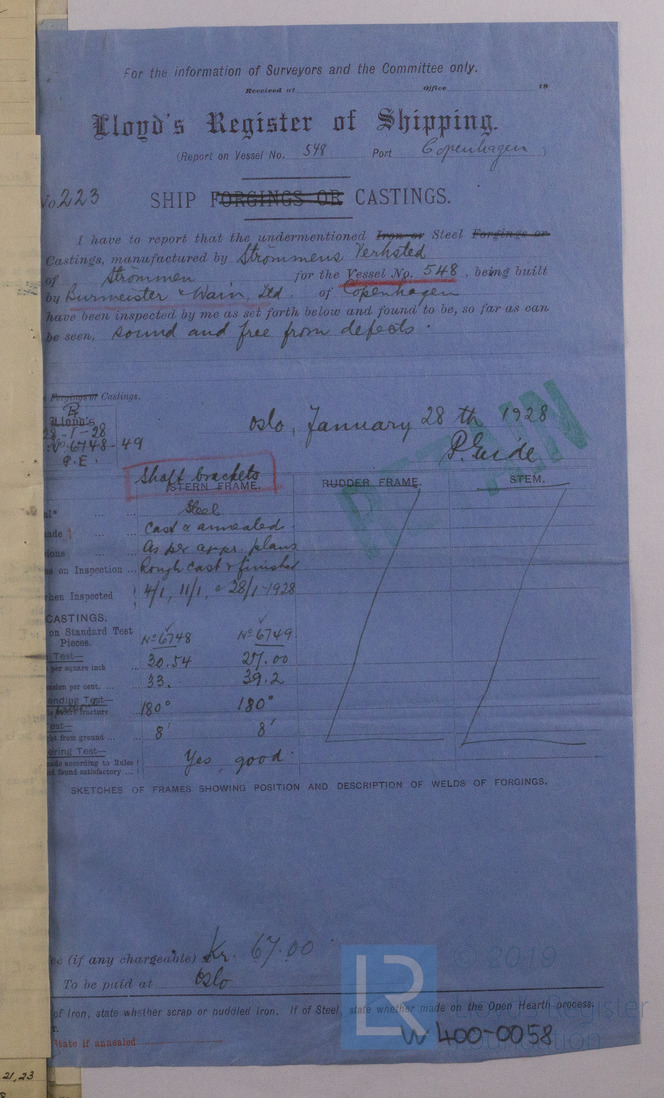 For the information of Surveyors and the Committee only.
Received at Office 19
Lloyd's Register of Shipping.
(Report on Vessel No. 548 Port Copenhagen )
No 223
SHIP FORGINGS OR CASTINGS.
I have to report that the undermentioned Iron or Steel Forgings or
Castings, manufactured by Strömmens Verksted
of Strömmen for the Vessel No. 548, being built
by Burmeister & Wain, Ltd. of Copenhagen
have been inspected by me as set forth below and found to be, so far as can
be seen, sound and free from defects.
Forgings or Castings.
Lloyd's
28-1-28
No 6748-49
Oslo, January 28th 1928
RETAIN
Shaft brackets
STERN FRAME. RUDDER FRAME. STEM.
Steel
Cast & annealed
As per appr. plans
on Inspection ... Rough cast & finished
when Inspected 4/1, 11/1, & 28/1-1928
CASTINGS.
on Standard Test
Pieces. No 6748 No 6749
Test—
per square inch 30.54 27.00
per cent. ... 33. 39.2
ending Test—
fracture 180° 180°
est—
from ground ... 8' 8'
ering Test—
made according to Rules
found satisfactory ... Yes, good.
SKETCHES OF FRAMES SHOWING POSITION AND DESCRIPTION OF WELDS OF FORGINGS.
(if any chargeable) Kr. 67.00
To be paid at Oslo
© 2019
of Iron, state whether scrap or puddled iron. If of Steel, state whether made on the Open Hearth process.
LR
Register
Foundation
W400-0058
State if annealed
21,23